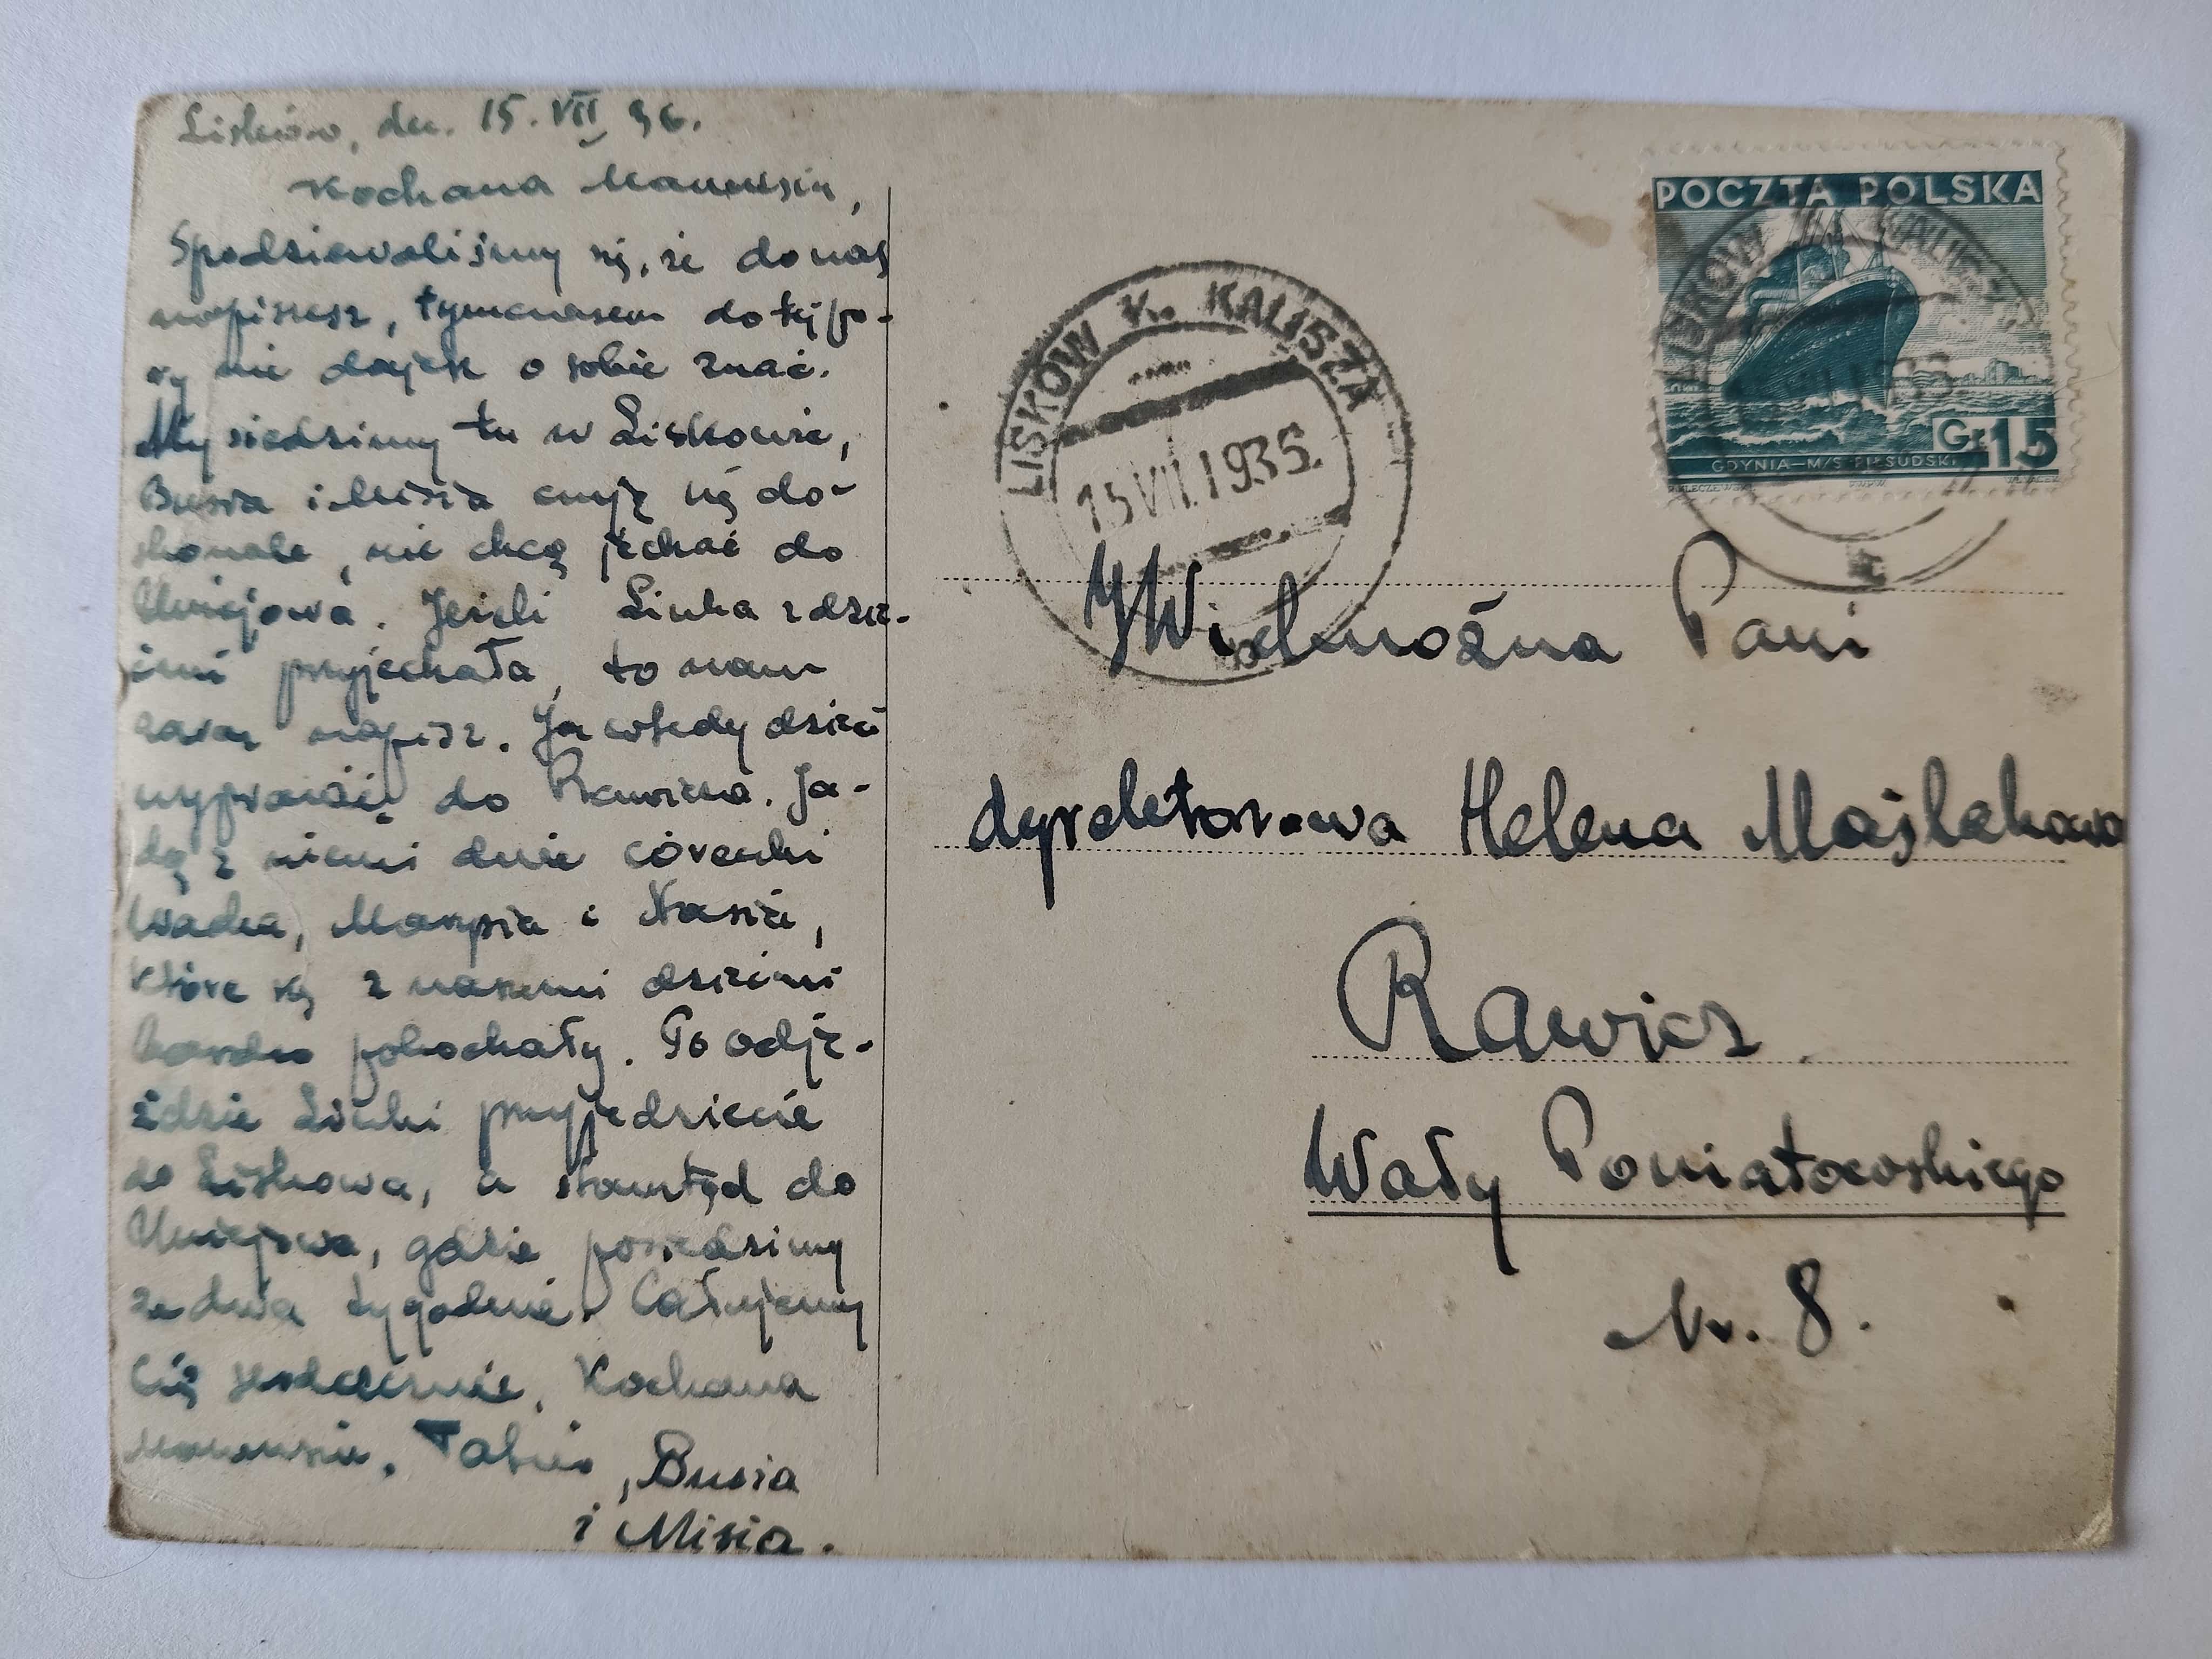 Lisków, dn. 15. VII 36.
Kochana Mamusiu,
Spodziewaliśmy się, że do nas
napiszesz, tymczasem do tej po-
ry nie dajesz o sobie znać.
My siedzimy tu w Liskowie,
Busia i Misia czują się do-
skonale, nie chcą jechać do
Uniejowa. Jeżeli Linka z dzie-
ćmi przyjechała, to nam
zaraz napisz. Ja wtedy dzieci
wyprawię do Rawicza. Ja-
dą z niemi dwie córeczki
Wadka, Marysia i Nasia,
które się z naszemi dziećmi
bardzo pokochały. Po odje-
ździe Linki przyjedziecie
do Liskowa, a stamtąd do
Uniejowa, gdzie posiedzimy
ze dwa tygodnie. Całujemy
Cię serdecznie, Kochana
Mamusiu. Tabuś, Busia
i Misia.
LISKÓW K. KALISZA
15 VII.1936.
POCZTA POLSKA
GR 15
GDYNIA—M/S PIŁSUDSKI
LISKÓW K. KALISZA
JWielmożna Pani
dyrektorowa Helena Maślakowa
Rawicz
Wały Poniatowskiego
Nr. 8.